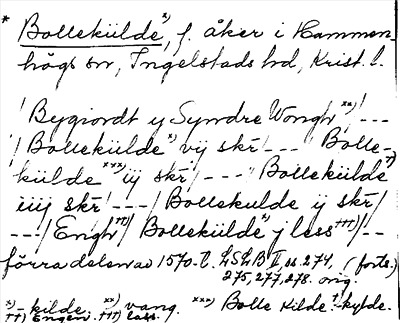 * Bollekülde *), f. åker i Hammen-
högs sn, Ingelstads hd, Krist. l.
/ Bygiordt y Syndre Wongh **) / ---
/ Bollekülde *) vij skr̄ --- / Bolle-
külde ***) iij skr̄ / --- / Bollekülde †)
iiij skr̄ --- / Bollekulde ij skr̄ /
-- / Engh ††) / Bollekülde *) j less †††) / --
förra delen av 1570-t. LSLB II ss. 274, (forts.)
275, 277, 278. orig.
*) - kilde. **) vang. ***) Bolle Kilde. †) - kylde.
††) Engen. †††) lass.